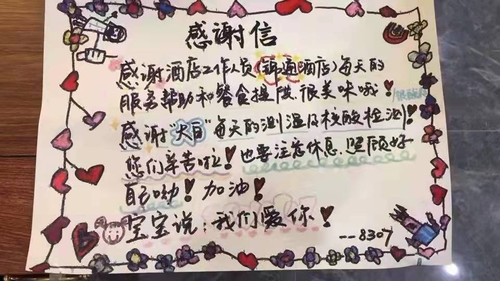 感谢信
感谢酒店工作人员(锦通酒店)每天的
服务帮助和餐食提供很美味哦!
感谢“大白”每天的测温及核酸检测!
您们辛苦啦!也要注意休息照顾好
自己呦!加油!
宝宝说:我们爱你!
---8307